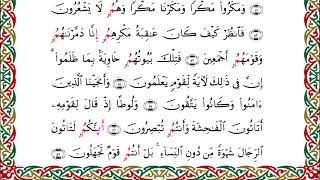 وَمَكَرُوا۟ مَكْرًا وَمَكَرْنَا مَكْرًا وَهُمُۥ لَا يَشْعُرُونَ
فَٱنظُرْ كَيْفَ كَانَ عَـٰقِبَةُ مَكْرِهِمُۥ إِنَّا دَمَّرْنَـٰهُمُۥ
وَقَوْمَهُمُۥ أَجْمَعِينَ فَتِلْكَ بُيُوتُهُمُۥ خَاوِيَةًۢ بِمَا ظَلَمُوٓا۟
إِنَّ فِى ذَٰلِكَ لَـَٔايَةً لِّقَوْمٍ يَعْلَمُونَ وَأَنجَيْنَا ٱلَّذِينَ
ءَامَنُوا۟ وَكَانُوا۟ يَتَّقُونَ وَلُوطًا إِذْ قَالَ لِقَوْمِهِۦٓ
أَتَأْتُونَ ٱلْفَـٰحِشَةَ وَأَنتُمُۥ تُبْصِرُونَ أَئِنَّكُمُۥ لَتَأْتُونَ
ٱلرِّجَالَ شَهْوَةً مِّن دُونِ ٱلنِّسَآءِ بَلْ أَنتُمُۥ قَوْمٌ تَجْهَلُونَ